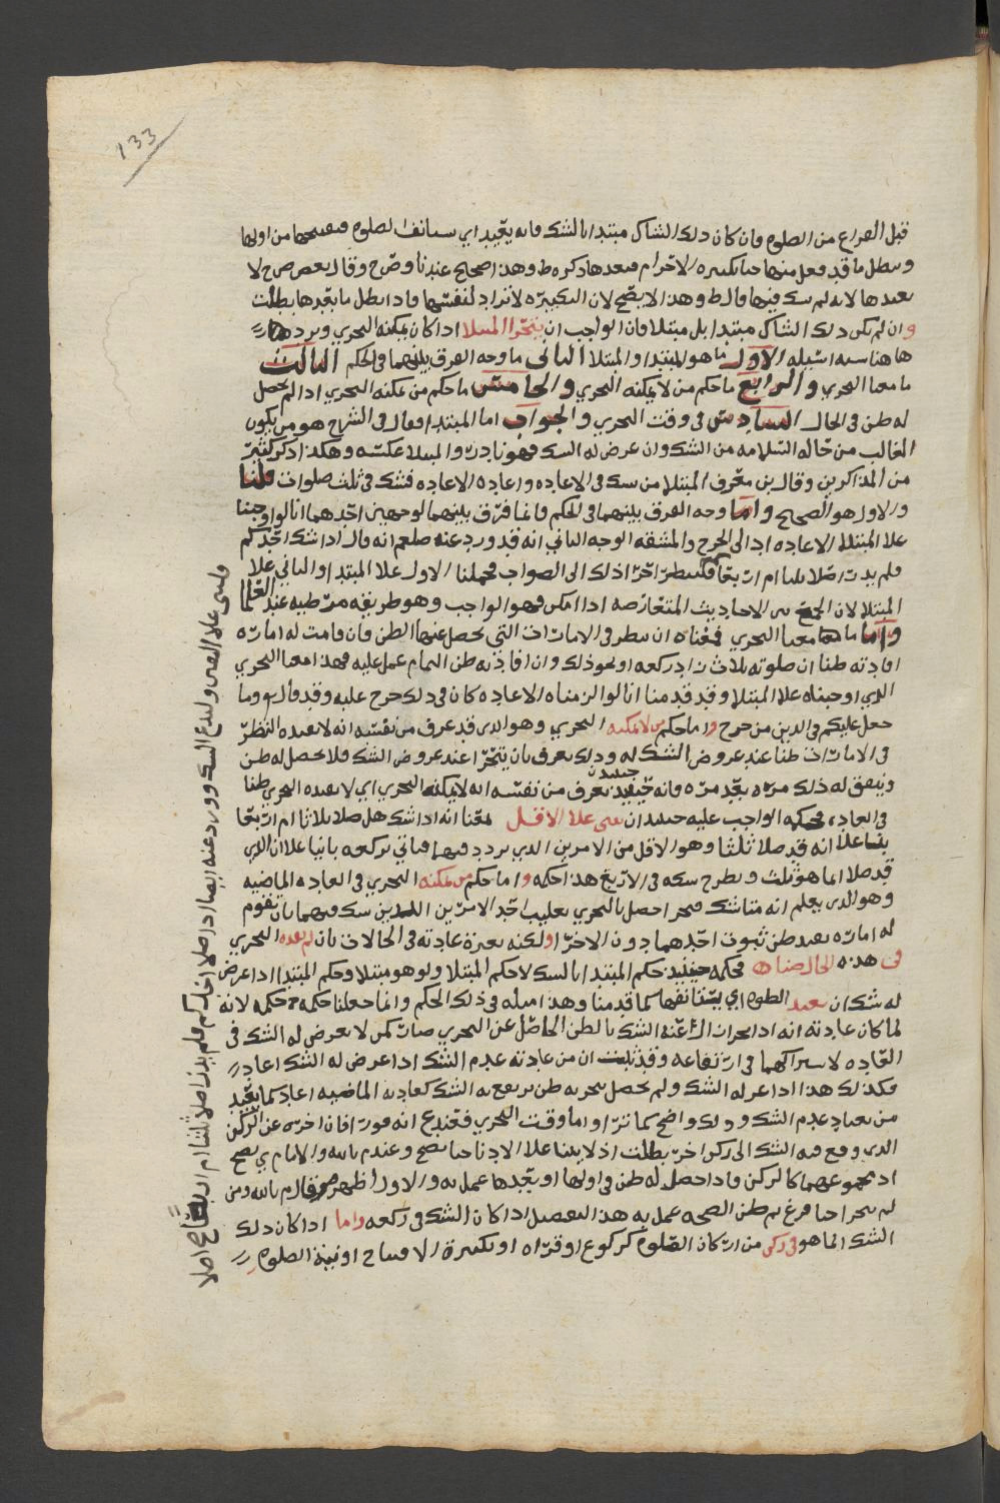 133
قبل الفراغ من الصلوه فان كان ذلك الشاك مبتدا بالشك فانه يعيد اي يستانف الصلوه فيصححها من اولها
ويبطل ما قد فعل منها حتى تكبيره الاحرام فيعيدها ذكره ط وهذا صحيح عندنا وص ح وقال بعض ص ح لا
يعيدها لانه لم يشك فيها قال ط وهذا لا يصح لان التكبيره لا تراد لنفسها فاذا بطل ما بعدها بطلت
وان لم يكن ذلك الشاك مبتدا بل مبتلا فان الواجب ان يتحرا المبتلا اذا كان يمكنه التحري ويرد
هاهنا سته اسئله الاول ما هو المبتدا والمبتلا الثاني ما وجه الفرق بينهما في الحكم الثالث
ما معنا التحري والرابع ما حكم من لا يمكنه التحري والخامس ما حكم من يمكنه التحري اذا لم يحصل
له ظن في الحال السادس في وقت التحري والجواب اما المبتدا فقال في الشرح هو من يكون
الغالب من حاله السلامه من الشك وان عرض له الشك فهو نادر والمبتلا عكسه وهكذا ذكر كثير
من المذاكرين وقال بن معرف المبتلا من شك في الاعاده واعاده الاعاده فشك في ثلث صلوات قلنا
والاول هو الصحيح واما وجه الفرق بينهما في الحكم فانما فرق بينهما لوجهين احدهما انا لو اوجبنا
علا المبتلا الاعاده ادا الى الحرج والمشقه الوجه الثاني انه قد ورد عنه صلعم انه قال اذا شك احدكم
فلم يدر اثلاثا صلا ام اربعا فلينظر احرا ذلك الى الصواب فحملنا الاول علا المبتدا والثاني علا
المبتلا لان الجمع بين الاحاديث المتعارضه اذا امكن فهو الواجب وهو طريقه مرتضيه عند العلما
واما ما معنا التحري فمعناه ان ينظر في الامارات التي يحصل عندها الظن فان قامت له اماره
افادته ظنا ان صلوته ثلاث زاد ركعه او نحو ذلك وان افادته ظن التمام عمل عليه فهذا معنا التحري
الذي اوجبناه علا المبتلا وقد قدمنا انا لو الزمناه الاعاده كان في ذلك حرج عليه وقد قال تع وما
جعل عليكم في الدين من حرج واما حكم من لا يمكنه التحري وهو الذي قد عرف من نفسه انه لا يفيده النظر
في الامارات ظنا عند عروض الشك له وذلك يعرف بان يتحرا عند عروض الشك فلا يحصل له ظن
ويتفق له ذلك مره بعد مره فانه حينيذ يعرف من نفسه انه لا يمكنه التحري اي لا يفيده التحري ظنا
في العاده فحكمه الواجب عليه حينيذ ان يبني علا الاقل معنا انه اذا شك هل صلا ثلاثا ام اربعا
بنا علا انه قد صلا ثلثا وهو الاقل من الامرين الذي تردد فيهما فياتي بركعه بانيا علا ان الذي
قد صلا انما هو ثلث ويطرح شكه في الاربع هذا حكمه واما حكم من يمكنه التحري في العاده الماضيه
وهو الذي يعلم انه متا شك فتحرا حصل بالتحري تغليب احد الامرين اللذين شك فيهما بان تقوم
له اماره تفيد ظن ثبوت احدهما دون الاخر او لكنه بغيره عادته في الحالات بان لم يفده التحري
في هذه الحال ظنا فحكمه حينيذ حكم المبتدا بالشك لا حكم المبتلا ولو هو مبتلا وحكم المبتدا اذا عرض
له شك ان يعيد الصلوه اي يستانفها كما قدمنا وهذا مثله في ذلك الحكم وانما جعلنا حكمه حكمه لانه
لما كان عادته انه اذا تحرا زال عنه الشك بالظن الحاصل عن التحري صار كمن لا يعرض له الشك في
العاده لاشتراكهما في ارتفاعه وقد ثبت ان من عادته عدم الشك اذا عرض له الشك اعاد
فكذلك هذا اذا عرض له الشك ولم يحصل بتحريه ظن يرتفع به الشك كعادته الماضيه اعاد كما يعيد
من يعتاد عدم الشك وذلك واضح كما ترا واما وقت التحري فعند ع انه فورا فان اخره عن الركن
الذي وقع فيه الشك الى ركن اخر بطلت اذ لا بنا علا الادنا حينا يصح وعند م بالله والامام ي يصح
اذ مجموعهما كالركن فاذا حصل له ظن في اولها او بعدها عمل به والاول اظهر قال م بالله ومن
لم يتحرا حتا فرغ ثم ظن الصحه عمل به هذا التفصيل اذا كان الشك في ركعه واما اذا كان ذلك
الشك انما هو في ركن من اركان الصلوه كركوع او قراه او تكبيره الافتتاح او نية الصلوه
وليبني علا اليقين وليدع الشك وورد عنه ايضا اذا صلا احدكم فلم يدر اصلا ثلثا ام اربعا